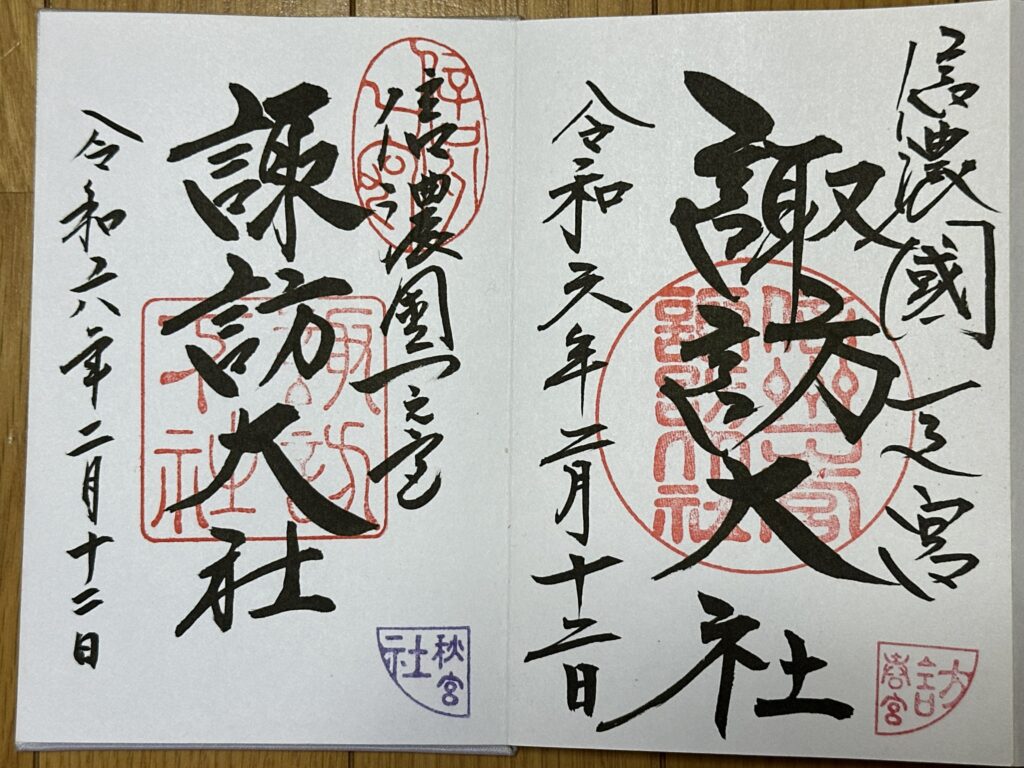 信濃國一之宮
諏訪大社
令和六年二月十二日
訪
春宮
信濃國一之宮
諏訪大社
令和六年二月十二日
秋宮
社